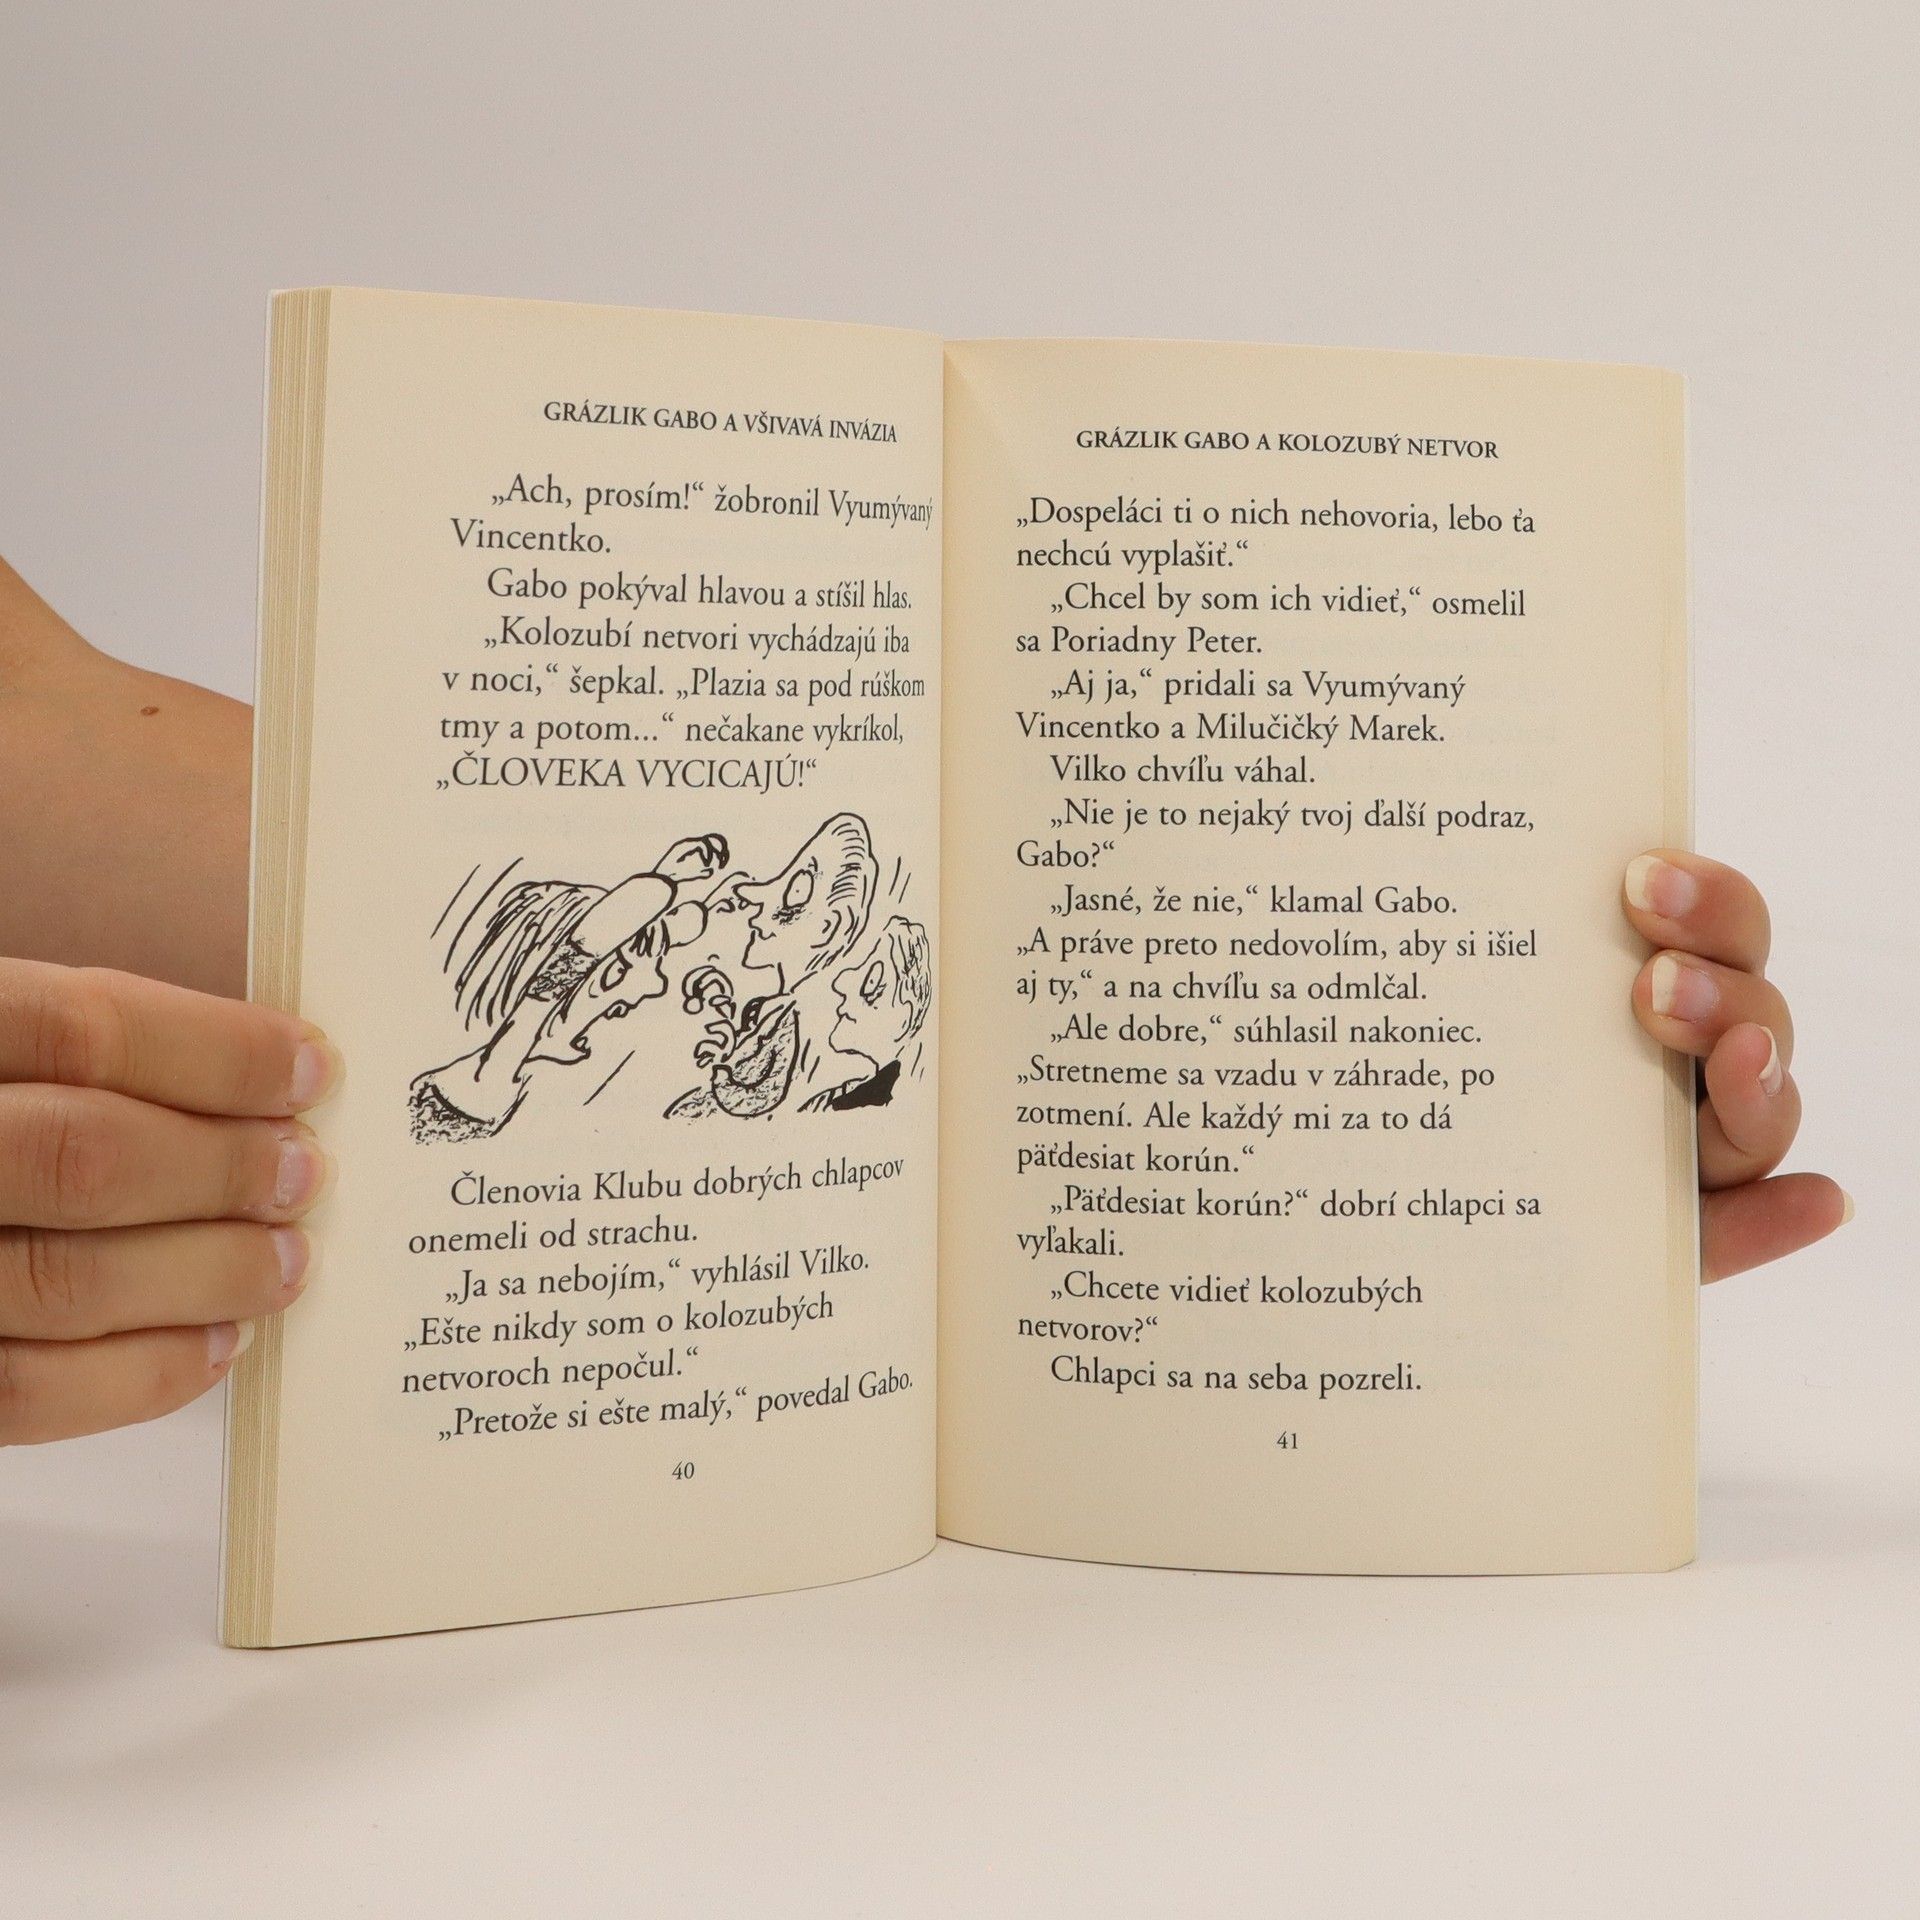 GRÁZLIK GABO A VŠIVAVÁ INVÁZIA
„Ach, prosím!“ žobronil Vyumývaný
Vincentko.
Gabo pokýval hlavou a stíšil hlas.
„Kolozubí netvori vychádzajú iba
v noci,“ šepkal. „Plazia sa pod rúškom
tmy a potom...“ nečakane vykríkol,
„ČLOVEKA VYCICAJÚ!“
Členovia Klubu dobrých chlapcov
onemeli od strachu.
„Ja sa nebojím,“ vyhlásil Vilko.
„Ešte nikdy som o kolozubých
netvoroch nepočul.“
„Pretože si ešte malý,“ povedal Gabo.
40
GRÁZLIK GABO A KOLOZUBÝ NETVOR
„Dospeláci ti o nich nehovoria, lebo ťa
nechcú vyplašiť.“
„Chcel by som ich vidieť,“ osmelil
sa Poriadny Peter.
„Aj ja,“ pridali sa Vyumývaný
Vincentko a Milučičký Marek.
Vilko chvíľu váhal.
„Nie je to nejaký tvoj ďalší podraz,
Gabo?“
„Jasné, že nie,“ klamal Gabo.
„A práve preto nedovolím, aby si išiel
aj ty,“ a na chvíľu sa odmlčal.
„Ale dobre,“ súhlasil nakoniec.
„Stretneme sa vzadu v záhrade, po
zotmení. Ale každý mi za to dá
päťdesiat korún.“
„Päťdesiat korún?“ dobrí chlapci sa
vyľakali.
„Chcete vidieť kolozubých
netvorov?“
Chlapci sa na seba pozreli.
41